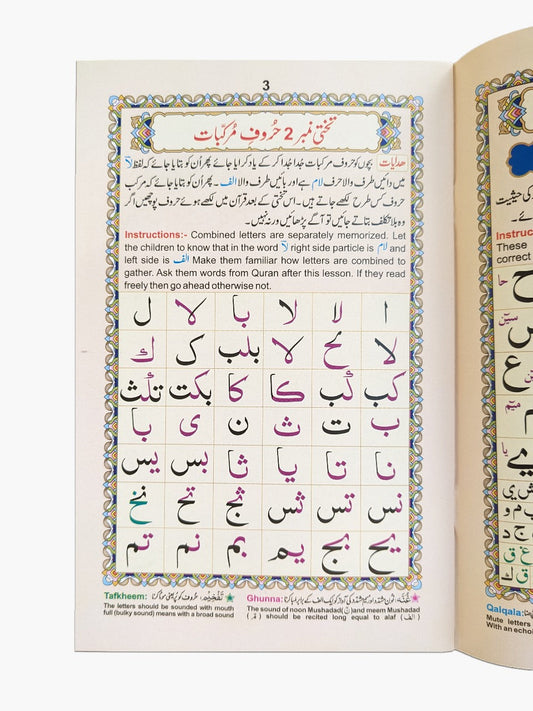 3
تختی نمبر 2 حُروفِ مُرکّبات
ھدایات بچوں کو حروف مرکبات جدا جدا کر کے یاد کرایا جائے پھر اُن کو بتایا جائے کہ لفظ لآ
میں دائیں طرف والا حرف لام ہے اور بائیں طرف والا الف۔ پھر اُن کو بتایا جائے کہ مرکب
حروف کس طرح لکھے جاتے ہیں۔ اس تختی کے بعد قرآن میں لکھے ہوئے حروف پوچھیں اگر
وہ بلا تکلف بتاتے جائیں تو آگے پڑھائیں ورنہ نہیں۔
Instructions:- Combined letters are separately memorized. Let
the children to know that in the word لآ right side particle is لام and
left side is الف Make them familiar how letters are combined to
gather. Ask them words from Quran after this lesson. If they read
freely then go ahead otherwise not.
ا لا لا با لا ل
لا لح لا بلب ک ك
کب کٔب کا کا بکت تلث
ب ت ث ن ی با
نا تا یا ثا بس یس
نس تس ثس ثج تح نخ
یح بج یم بم نم تم
Tafkheem: تَفْخِیْم: حروف کو پُر یعنی موٹا کرنا
The letters should be sounded with mouth
full (bulky sound) means with a broad sound
Ghunna: غُنَّه: نون مشدد اور میم مشدد کی آواز کو ایک الف کے برابر لمبا کرنا
The sound of noon Mushadad (نّ) and meem Mushadad
(مّ) should be recited long equal to alaf (الف)
کی حیثیت
Instruc
These
correct
ح حا
س سین
ع
م میم
یا
Qalqala:
Mute letters
With an echoi